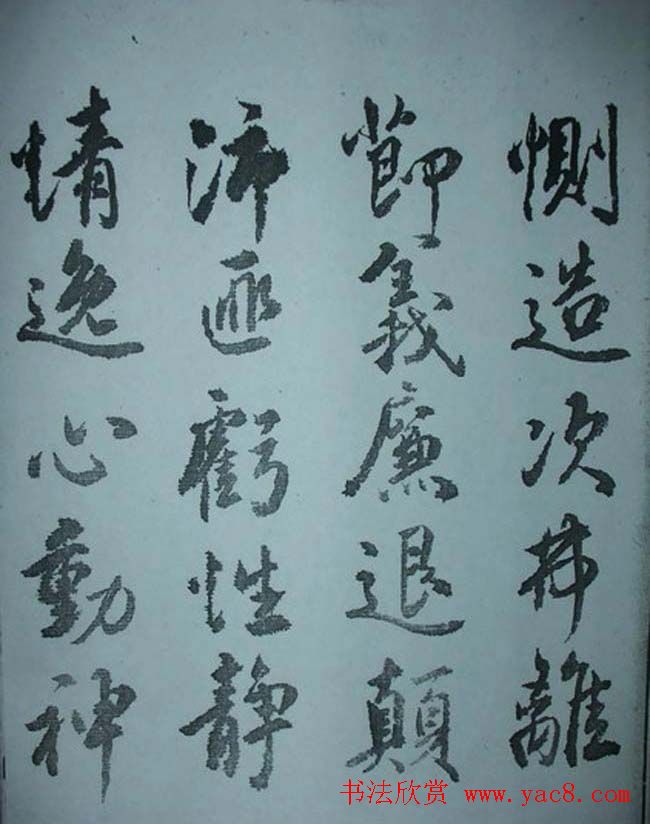 惻造次弗離
節義廉退顛
沛匪虧性靜
情逸心動神
书法欣赏 www.yac8.com